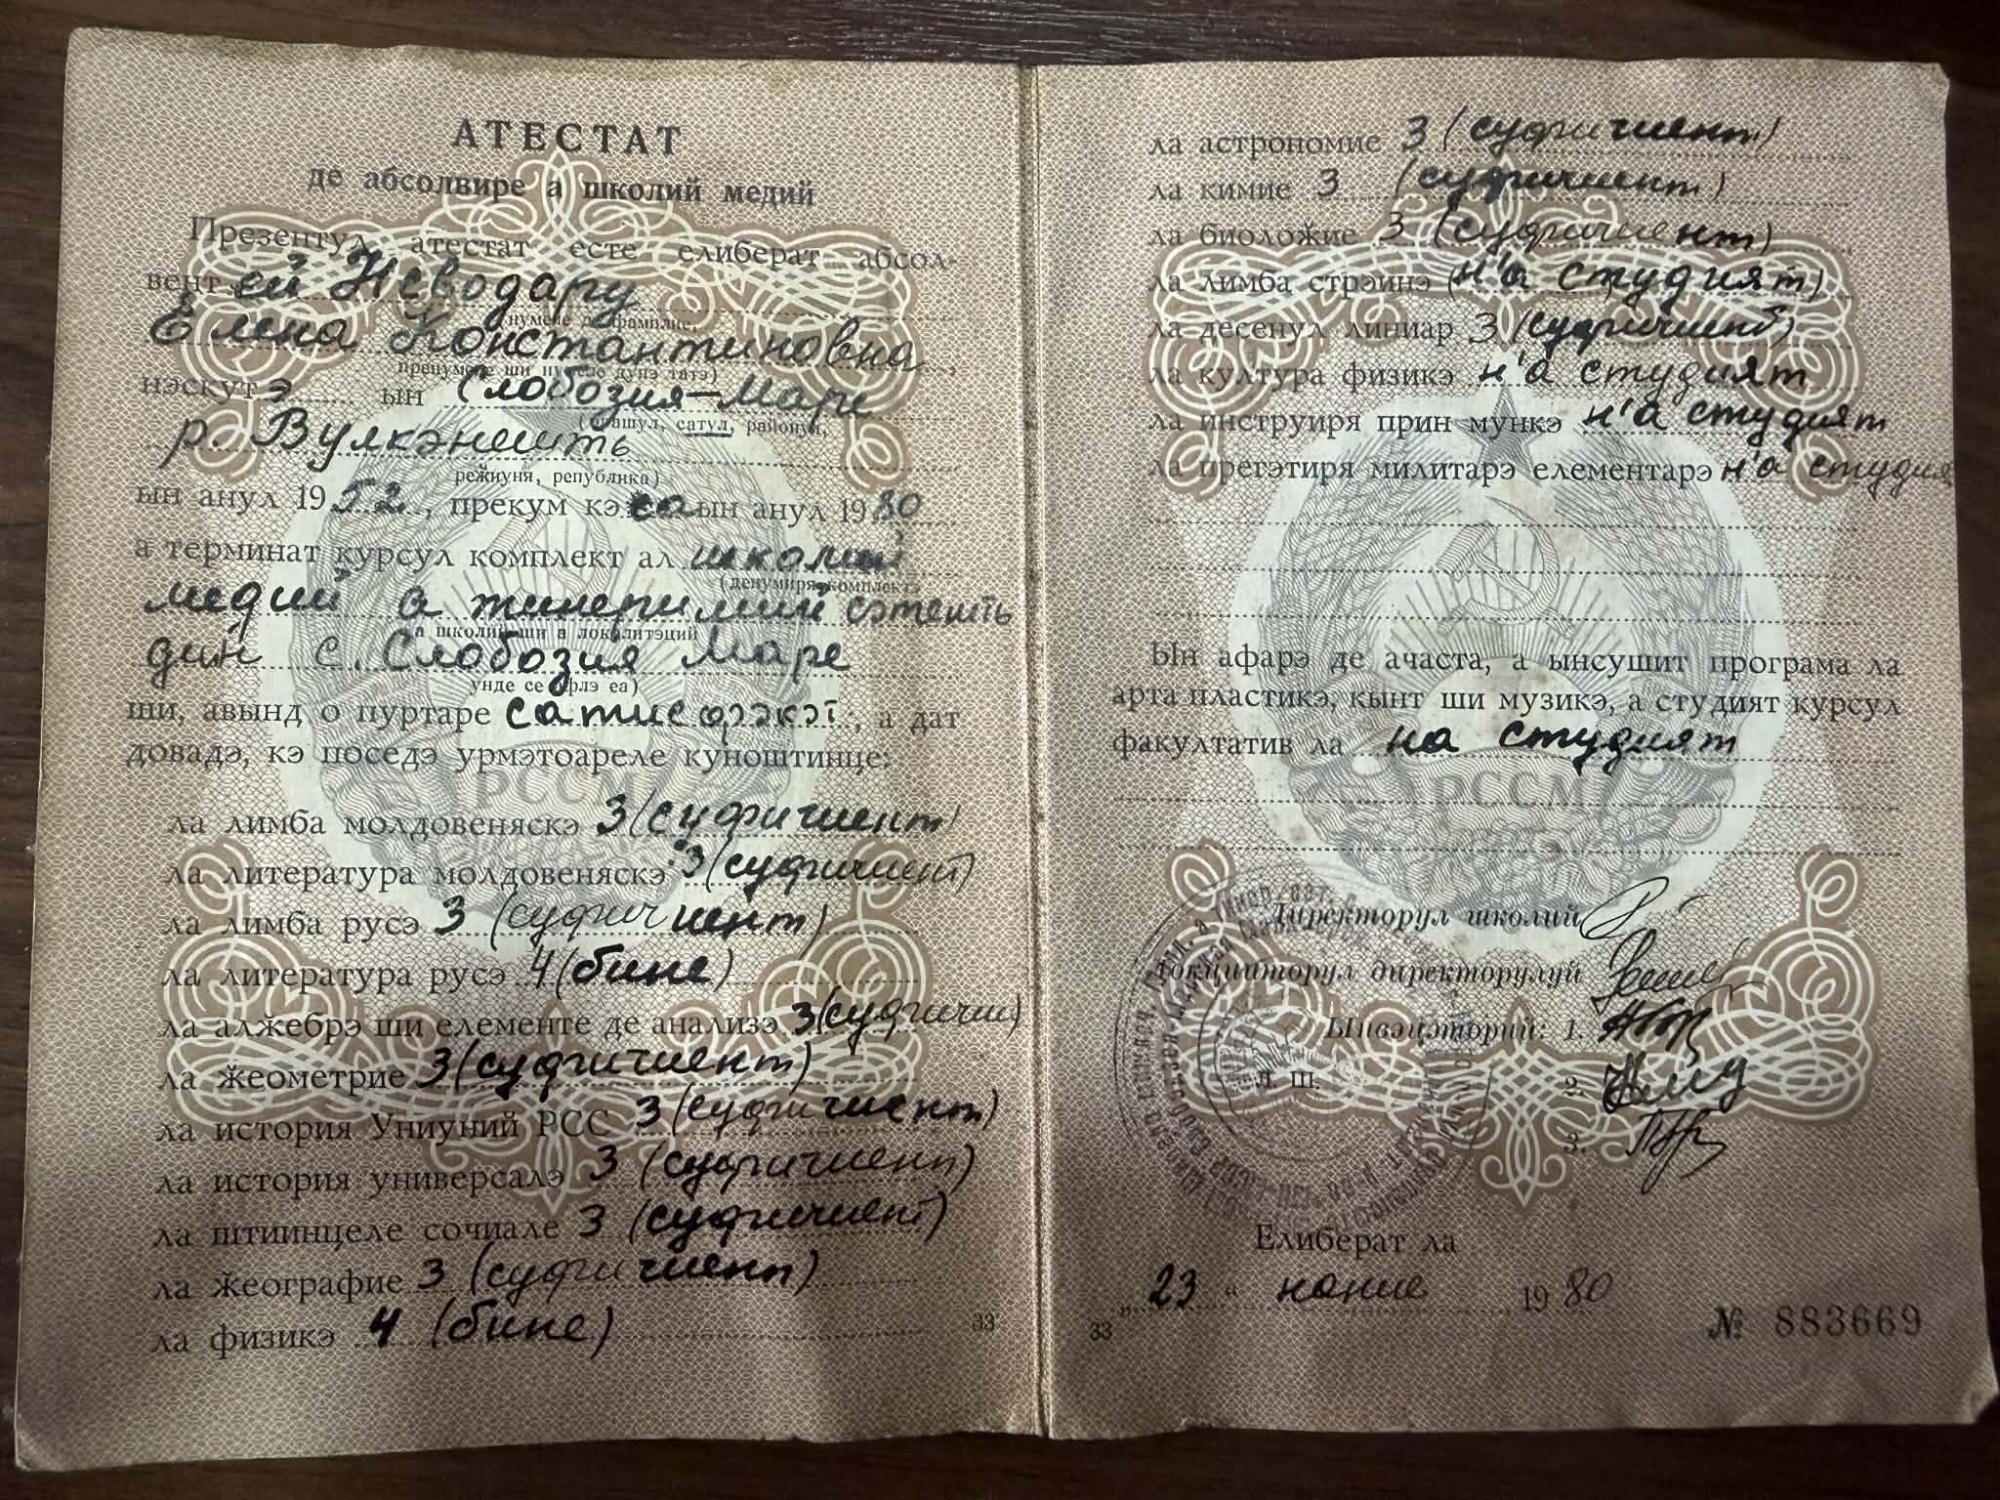 АТЕСТАТ
де абсолвире а школий медий
Презентул атестат есте елиберат абсол-
вент ей Неводару
(нумеле де фамилие,
Елена Константиновна
пренумеле ши нумеле дупэ татэ)
нэскутэ ын Слобозия-Маре
(орашул, сатул, районул,
р. Вулкэнешть
режиуня, република)
ын анул 1952, прекум кэ еа ын анул 1980
а терминат курсул комплект ал школий
(денумиря комплектэ
медий а тинеримий сэтешть
а школий ши а локалитэций
дин с. Слобозия Маре
унде се афлэ еа)
ши, авынд о пуртаре сатисфэкэт., а дат
довадэ, кэ поседэ урмэтоареле куноштинце:
ла лимба молдовеняскэ 3 (суфичиент)
ла литература молдовеняскэ 3 (суфичиент)
ла лимба русэ 3 (суфичиент)
ла литература русэ 4 (бине)
ла алӂебрэ ши елементе де анализэ 3 (суфичи)
ла ӂеометрие 3 (суфичиент)
ла история Униуний РСС 3 (суфичиент)
ла история универсалэ 3 (суфичиент)
ла штиинцеле сочиале 3 (суфичиент)
ла ӂеографие 3 (суфичиент)
ла физикэ 4 (бине)
33
ла астрономие 3 (суфичиент)
ла кимие 3 (суфичиент)
ла биолоӂие 3 (суфичиент)
ла лимба стрэинэ (н'а студият)
ла десенул линиар 3 (суфичиент)
ла култура физикэ н'а студият
ла инструиря прин мункэ н'а студият
ла прегэтиря милитарэ елементарэ н'а студия
Ын афарэ де ачаста, а ынсушит програма ла
арта пластикэ, кынт ши музикэ, а студият курсул
факултатив ла на студият
РССМ
РССМ
Директорул школий
Локциторул директорулуй
Ынвэцэторий: 1.
Л. Ш. 2.
3.
Елиберат ла
„23“ юние 1980
33
№ 883669